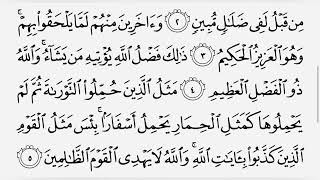 مِن قَبْلُ لَفِى ضَلَٰلٍ مُّبِينٍ ٢ وَءَاخَرِينَ مِنْهُمْ لَمَّا يَلْحَقُوا۟ بِهِمْ ۚ
وَهُوَ ٱلْعَزِيزُ ٱلْحَكِيمُ ٣ ذَٰلِكَ فَضْلُ ٱللَّهِ يُؤْتِيهِ مَن يَشَآءُ ۚ وَٱللَّهُ
ذُو ٱلْفَضْلِ ٱلْعَظِيمِ ٤ مَثَلُ ٱلَّذِينَ حُمِّلُوا۟ ٱلتَّوْرَىٰةَ ثُمَّ لَمْ
يَحْمِلُوهَا كَمَثَلِ ٱلْحِمَارِ يَحْمِلُ أَسْفَارًۢا ۚ بِئْسَ مَثَلُ ٱلْقَوْمِ
ٱلَّذِينَ كَذَّبُوا۟ بِـَٔايَٰتِ ٱللَّهِ ۚ وَٱللَّهُ لَا يَهْدِى ٱلْقَوْمَ ٱلظَّٰلِمِينَ ٥